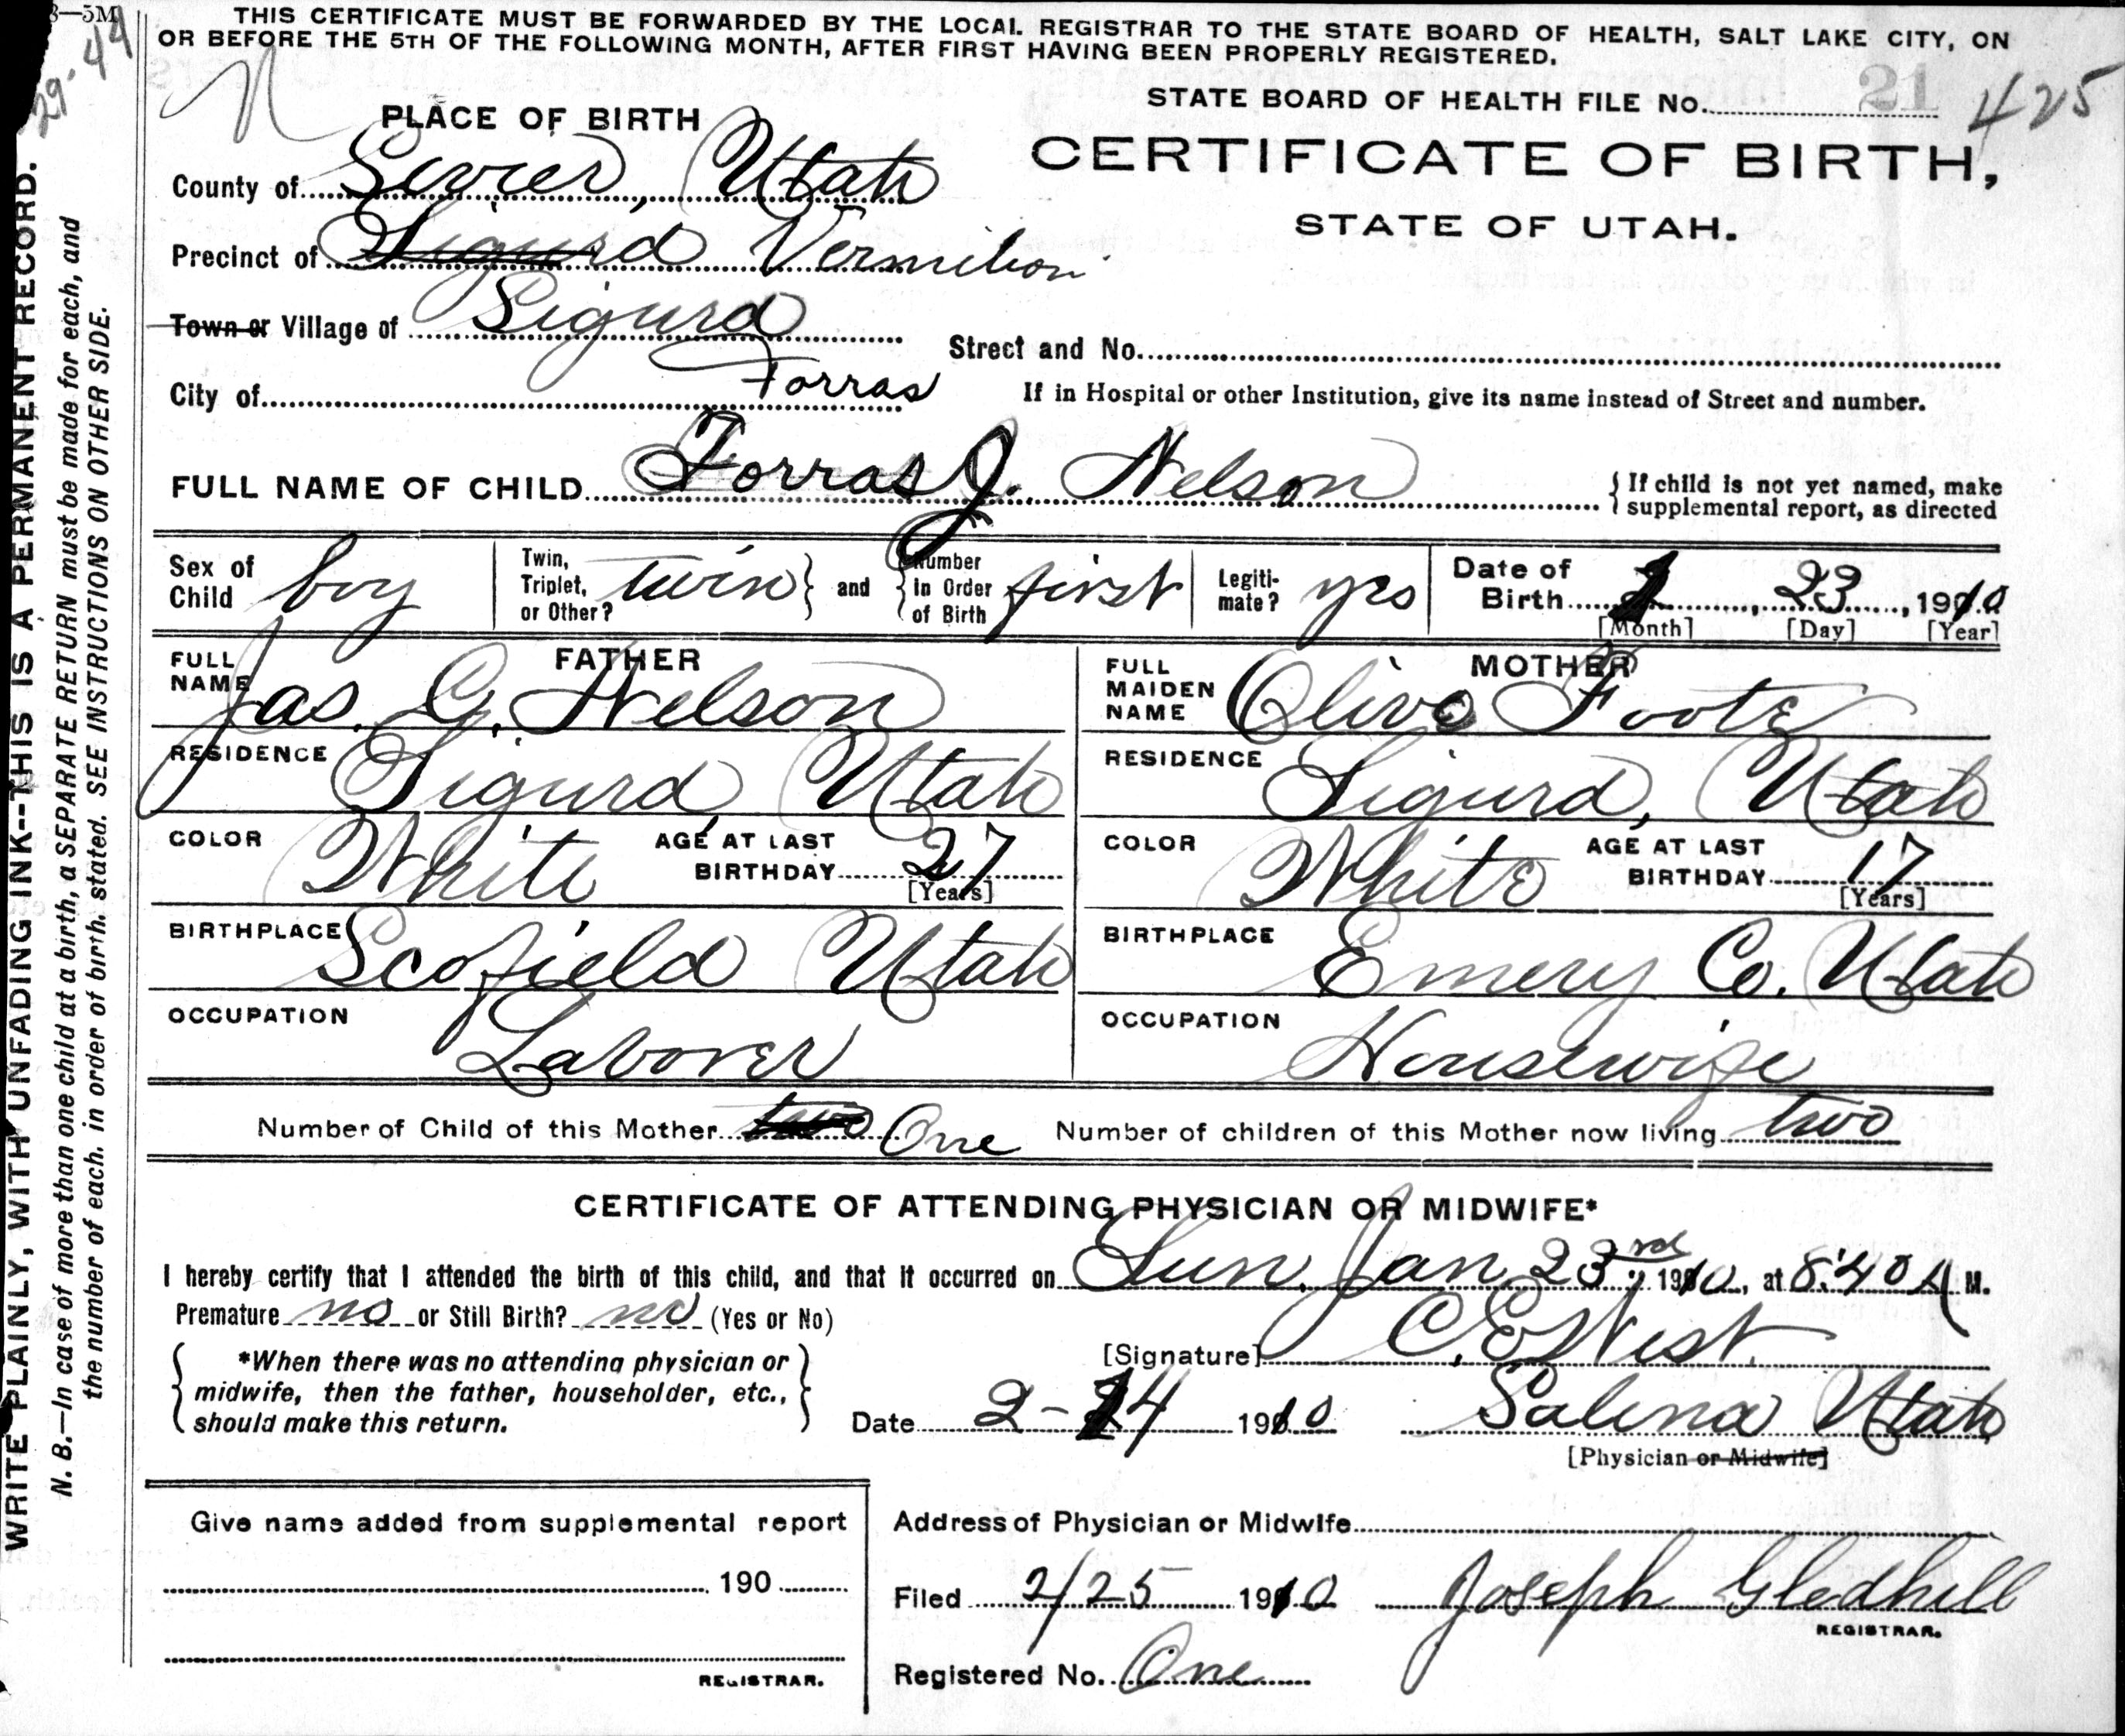 8—5M
29-44
THIS CERTIFICATE MUST BE FORWARDED BY THE LOCAL REGISTRAR TO THE STATE BOARD OF HEALTH, SALT LAKE CITY, ON
OR BEFORE THE 5TH OF THE FOLLOWING MONTH, AFTER FIRST HAVING BEEN PROPERLY REGISTERED.
N
STATE BOARD OF HEALTH FILE No. 21 425
CERTIFICATE OF BIRTH,
STATE OF UTAH.
PLACE OF BIRTH
County of Sevier, Utah
Precinct of Sigurd Vermilion
Town or Village of Sigurd
Street and No.
City of
Forras
If in Hospital or other Institution, give its name instead of Street and number.
FULL NAME OF CHILD Forras J. Nelson
If child is not yet named, make
supplemental report, as directed
Sex of Child boy
Twin, Triplet, or Other? twin
and
Number in Order of Birth first
Legitimate? yes
Date of Birth 1, 23, 1910
[Month] [Day] [Year]
FATHER
FULL NAME Jas. G. Nelson
RESIDENCE Sigurd Utah
COLOR White
AGE AT LAST BIRTHDAY 27
[Years]
BIRTHPLACE Scofield Utah
OCCUPATION Laborer
MOTHER
FULL MAIDEN NAME Olive Foote
RESIDENCE Sigurd, Utah
COLOR White
AGE AT LAST BIRTHDAY 17
[Years]
BIRTHPLACE Emery Co. Utah
OCCUPATION Housewife
Number of Child of this Mother two One Number of children of this Mother now living two
CERTIFICATE OF ATTENDING PHYSICIAN OR MIDWIFE*
I hereby certify that I attended the birth of this child, and that it occurred on Sun. Jan 23rd, 1910, at 8:40 A M.
Premature no or Still Birth? no (Yes or No)
*When there was no attending physician or
midwife, then the father, householder, etc.,
should make this return.
[Signature] C. E. West
Date 2-14 1910 Salina Utah
[Physician or Midwife]
Give name added from supplemental report
190
REGISTRAR.
Address of Physician or Midwife
Filed 2/25 1910 Joseph Gledhill
REGISTRAR.
Registered No. One
WRITE PLAINLY, WITH UNFADING INK--THIS IS A PERMANENT RECORD.
N. B.—In case of more than one child at a birth, a SEPARATE RETURN must be made for each, and
the number of each, in order of birth, stated. SEE INSTRUCTIONS ON OTHER SIDE.